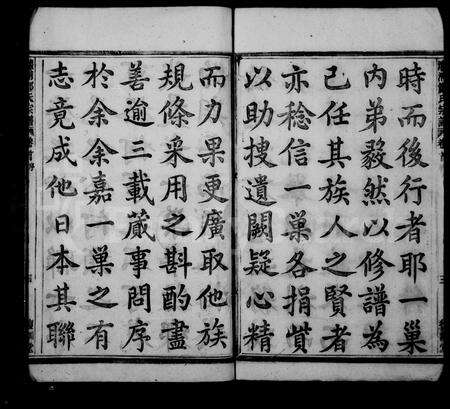 時而後行者耶一巢
內弟毅然以修譜為
己任其族人之賢者
亦稔信一巢各捐貲
以助搜遺闕疑心精
而力果更廣取他族
規條采用之斟酌盡
善逾三載蕆事問序
於余余嘉一巢之有
志竟成他日本其聯